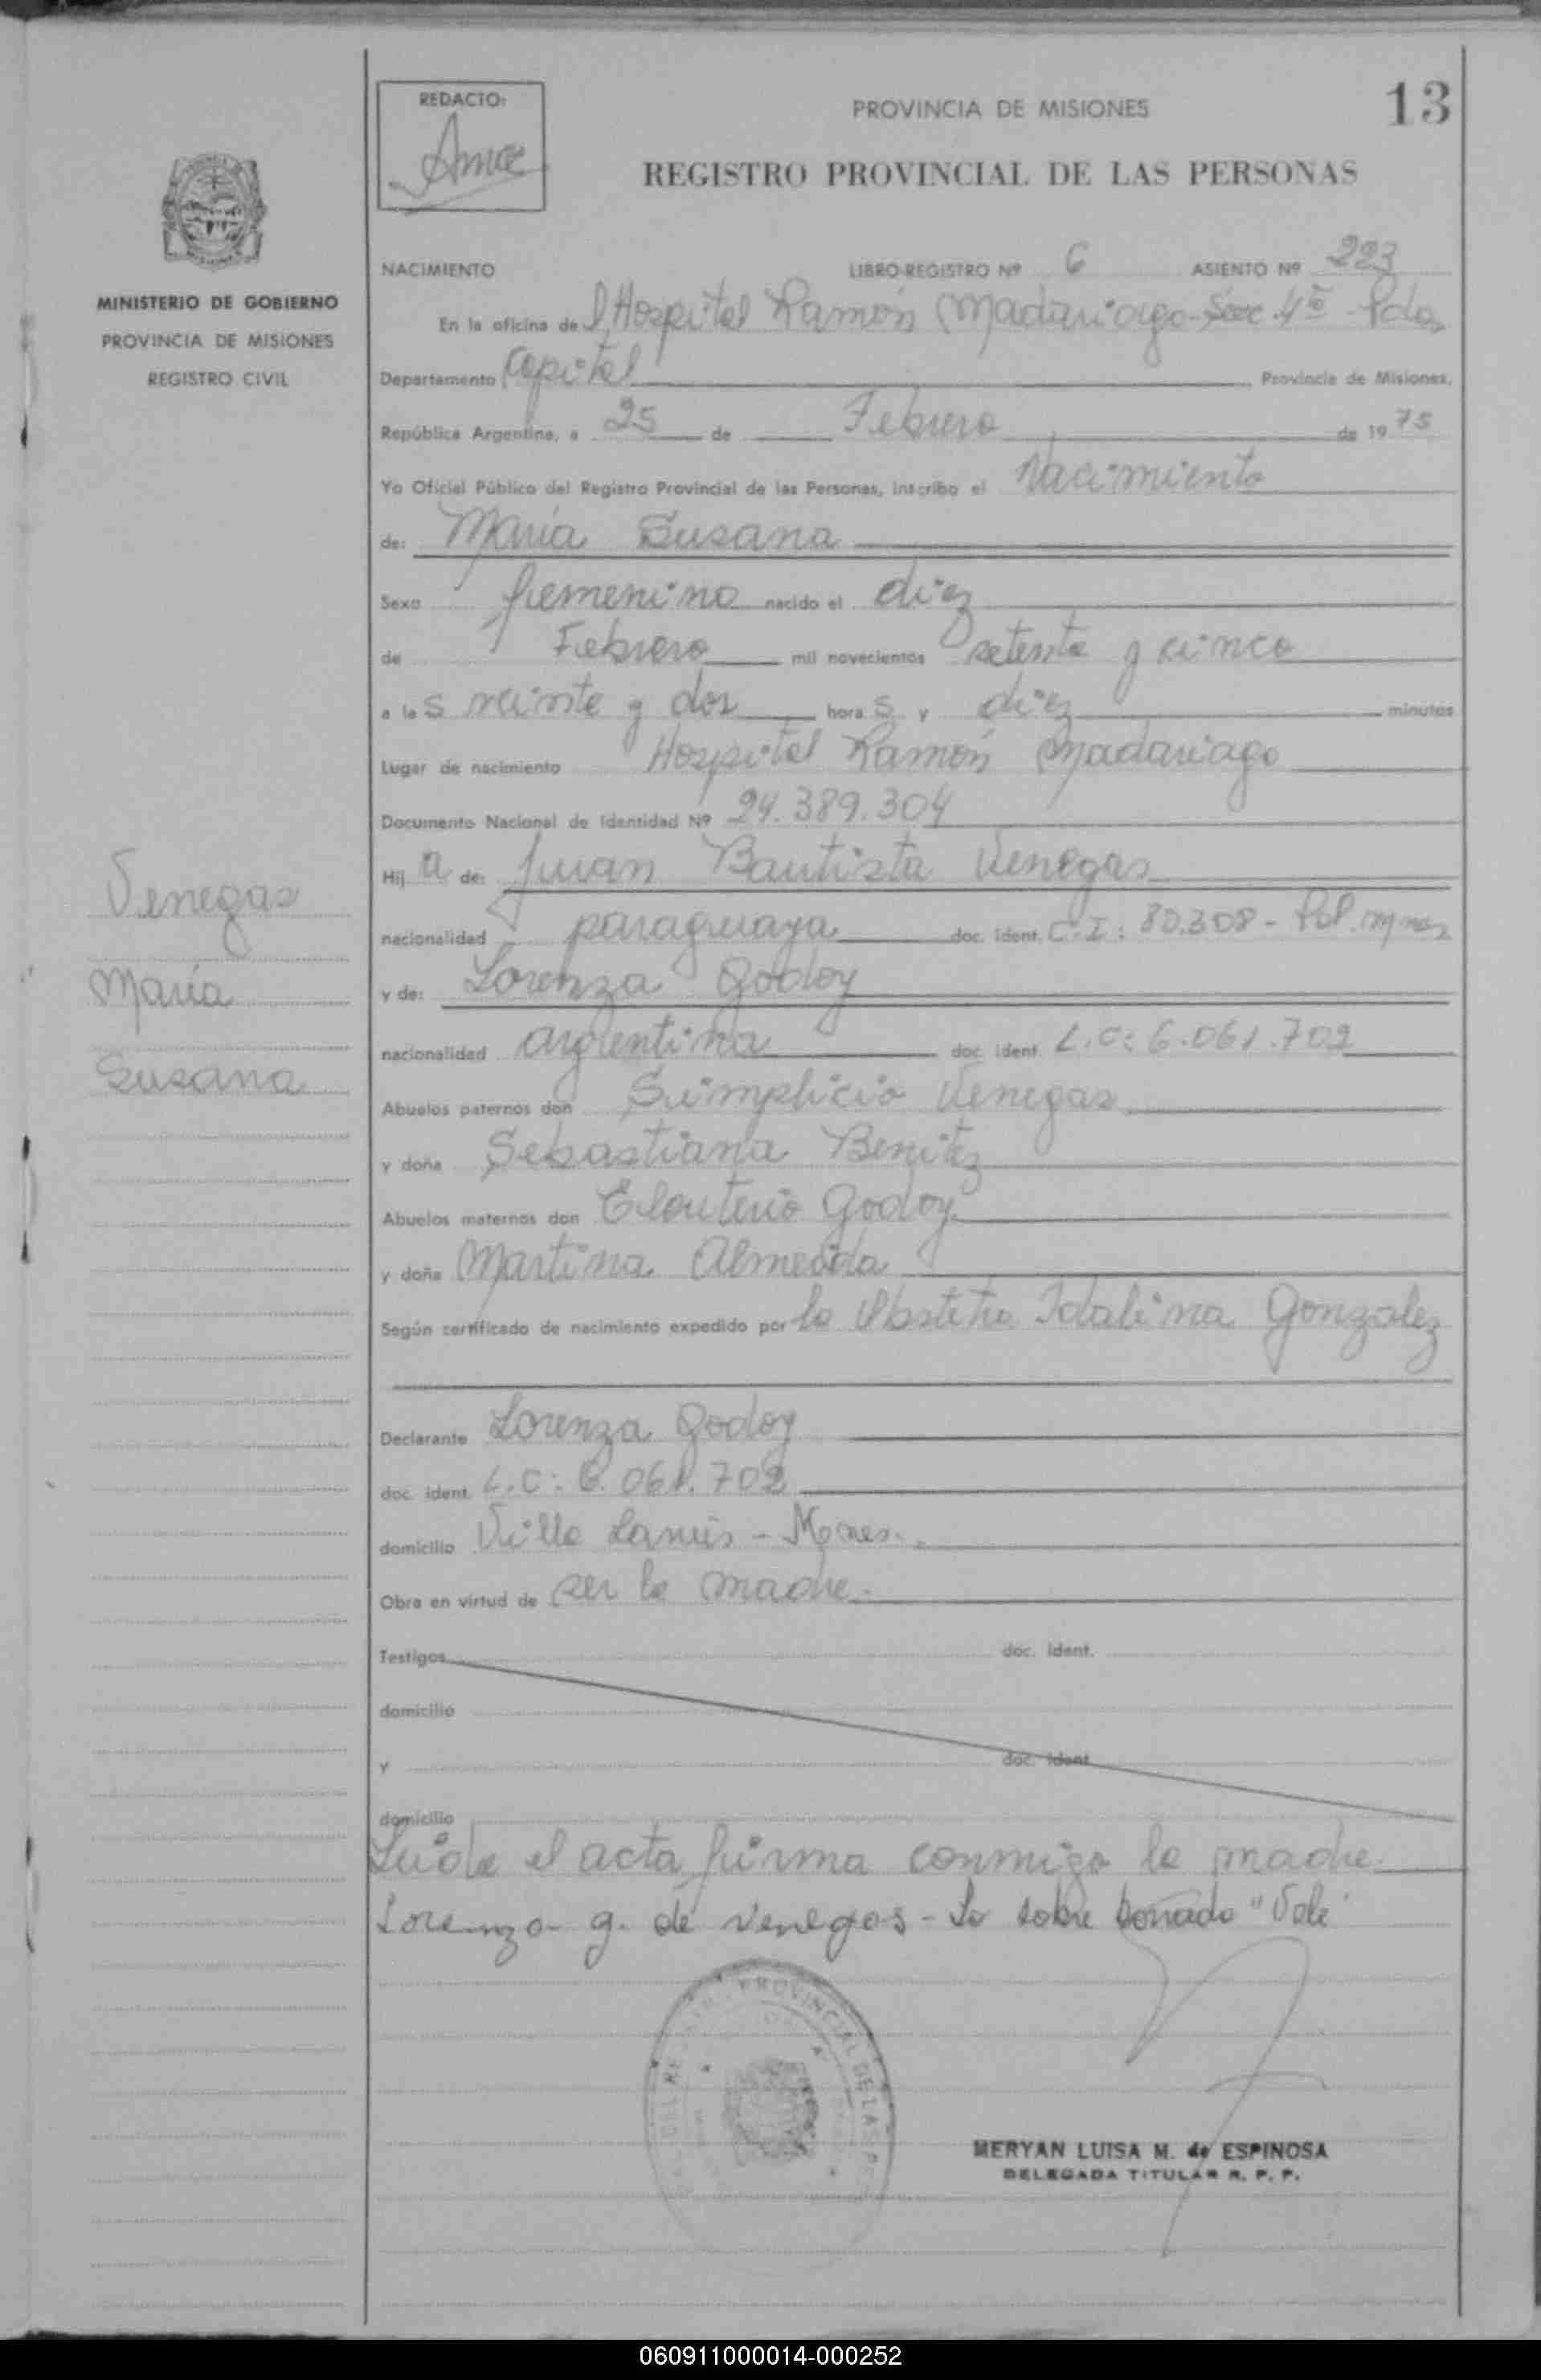 13
REDACTO:
PROVINCIA DE MISIONES
REGISTRO PROVINCIAL DE LAS PERSONAS
MINISTERIO DE GOBIERNO
PROVINCIA DE MISIONES
REGISTRO CIVIL
NACIMIENTO LIBRO-REGISTRO Nº 6 ASIENTO Nº 223
En la oficina de l Hospital Ramón Madariaga - Secc. 4ta - Pdas
Departamento Capital Provincia de Misiones,
República Argentina, a 25 de Febrero de 19 75
Yo Oficial Público del Registro Provincial de las Personas, inscribo el Nacimiento
de: María Susana
Sexo femenino nacido el diez
de Febrero mil novecientos setenta y cinco
a las veinte y dos horas y diez minutos
Lugar de nacimiento Hospital Ramón Madariaga
Documento Nacional de Identidad Nº 24.389.304
Hij a de: Juan Bautista Venegas
nacionalidad paraguaya doc. ident. C.I: 80.308 - Pol. Mnes
y de: Lorenza Godoy
nacionalidad argentina doc. ident. L.C: 6.061.702
Abuelos paternos don Simplicio Venegas
y doña Sebastiana Benitez
Abuelos maternos don Eleuterio Godoy
y doña Martina Almeida
Según certificado de nacimiento expedido por la Obstetra Idalina Gonzalez
Declarante Lorenza Godoy
doc. ident. L.C: 6.061.702
domicilio Villa Lanús - Mnes.
Obra en virtud de ser la madre.
Testigos doc. ident.
domicilio
y doc. ident.
domicilio
Leída el acta firma conmigo la madre.
Lorenza g. de venegas - Lo sobre borrado "Vale"
Venegas
María
Susana
PROVINCIAL DE LAS
MERYAN LUISA M. de ESPINOSA
DELEGADA TITULAR R. P. P.
060911000014-000252